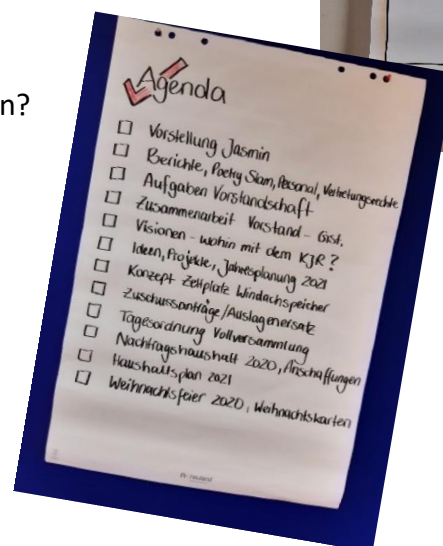 n?
Agenda
Vorstellung Jasmin
Berichte, Poetry Slam, Personal, Vertretungsrechte
Aufgaben Vorstandschaft
Zusammenarbeit Vorstand - Gst.
Visionen - wohin mit dem KJR?
Ideen, Projekte, Jahresplanung 2021
Konzept Zeltplatz Windachspeicher
Zuschussanträge/Auslagenersatz
Tagesordnung Vollversammlung
Nachtragshaushalt 2020, Anschaffungen
Haushaltsplan 2021
Weihnachtsfeier 2020, Weihnachtskarten
neuland